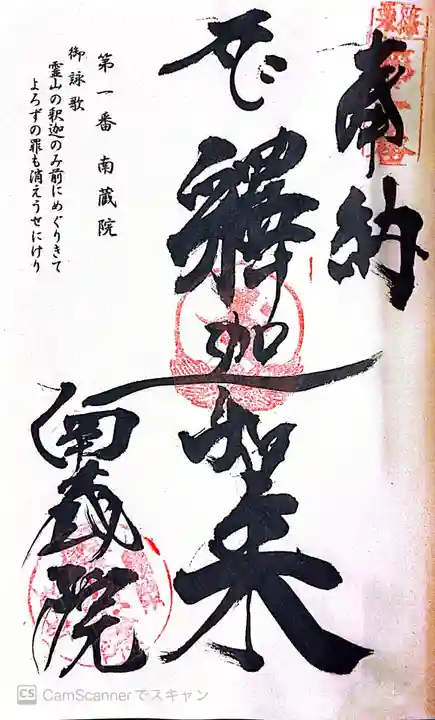 奉納
釋迦如来
南蔵院
第一番 南蔵院
御詠歌
霊山の釈迦のみ前にめぐりきて
よろずの罪も消えうせにけり
CS CamScannerでスキャン